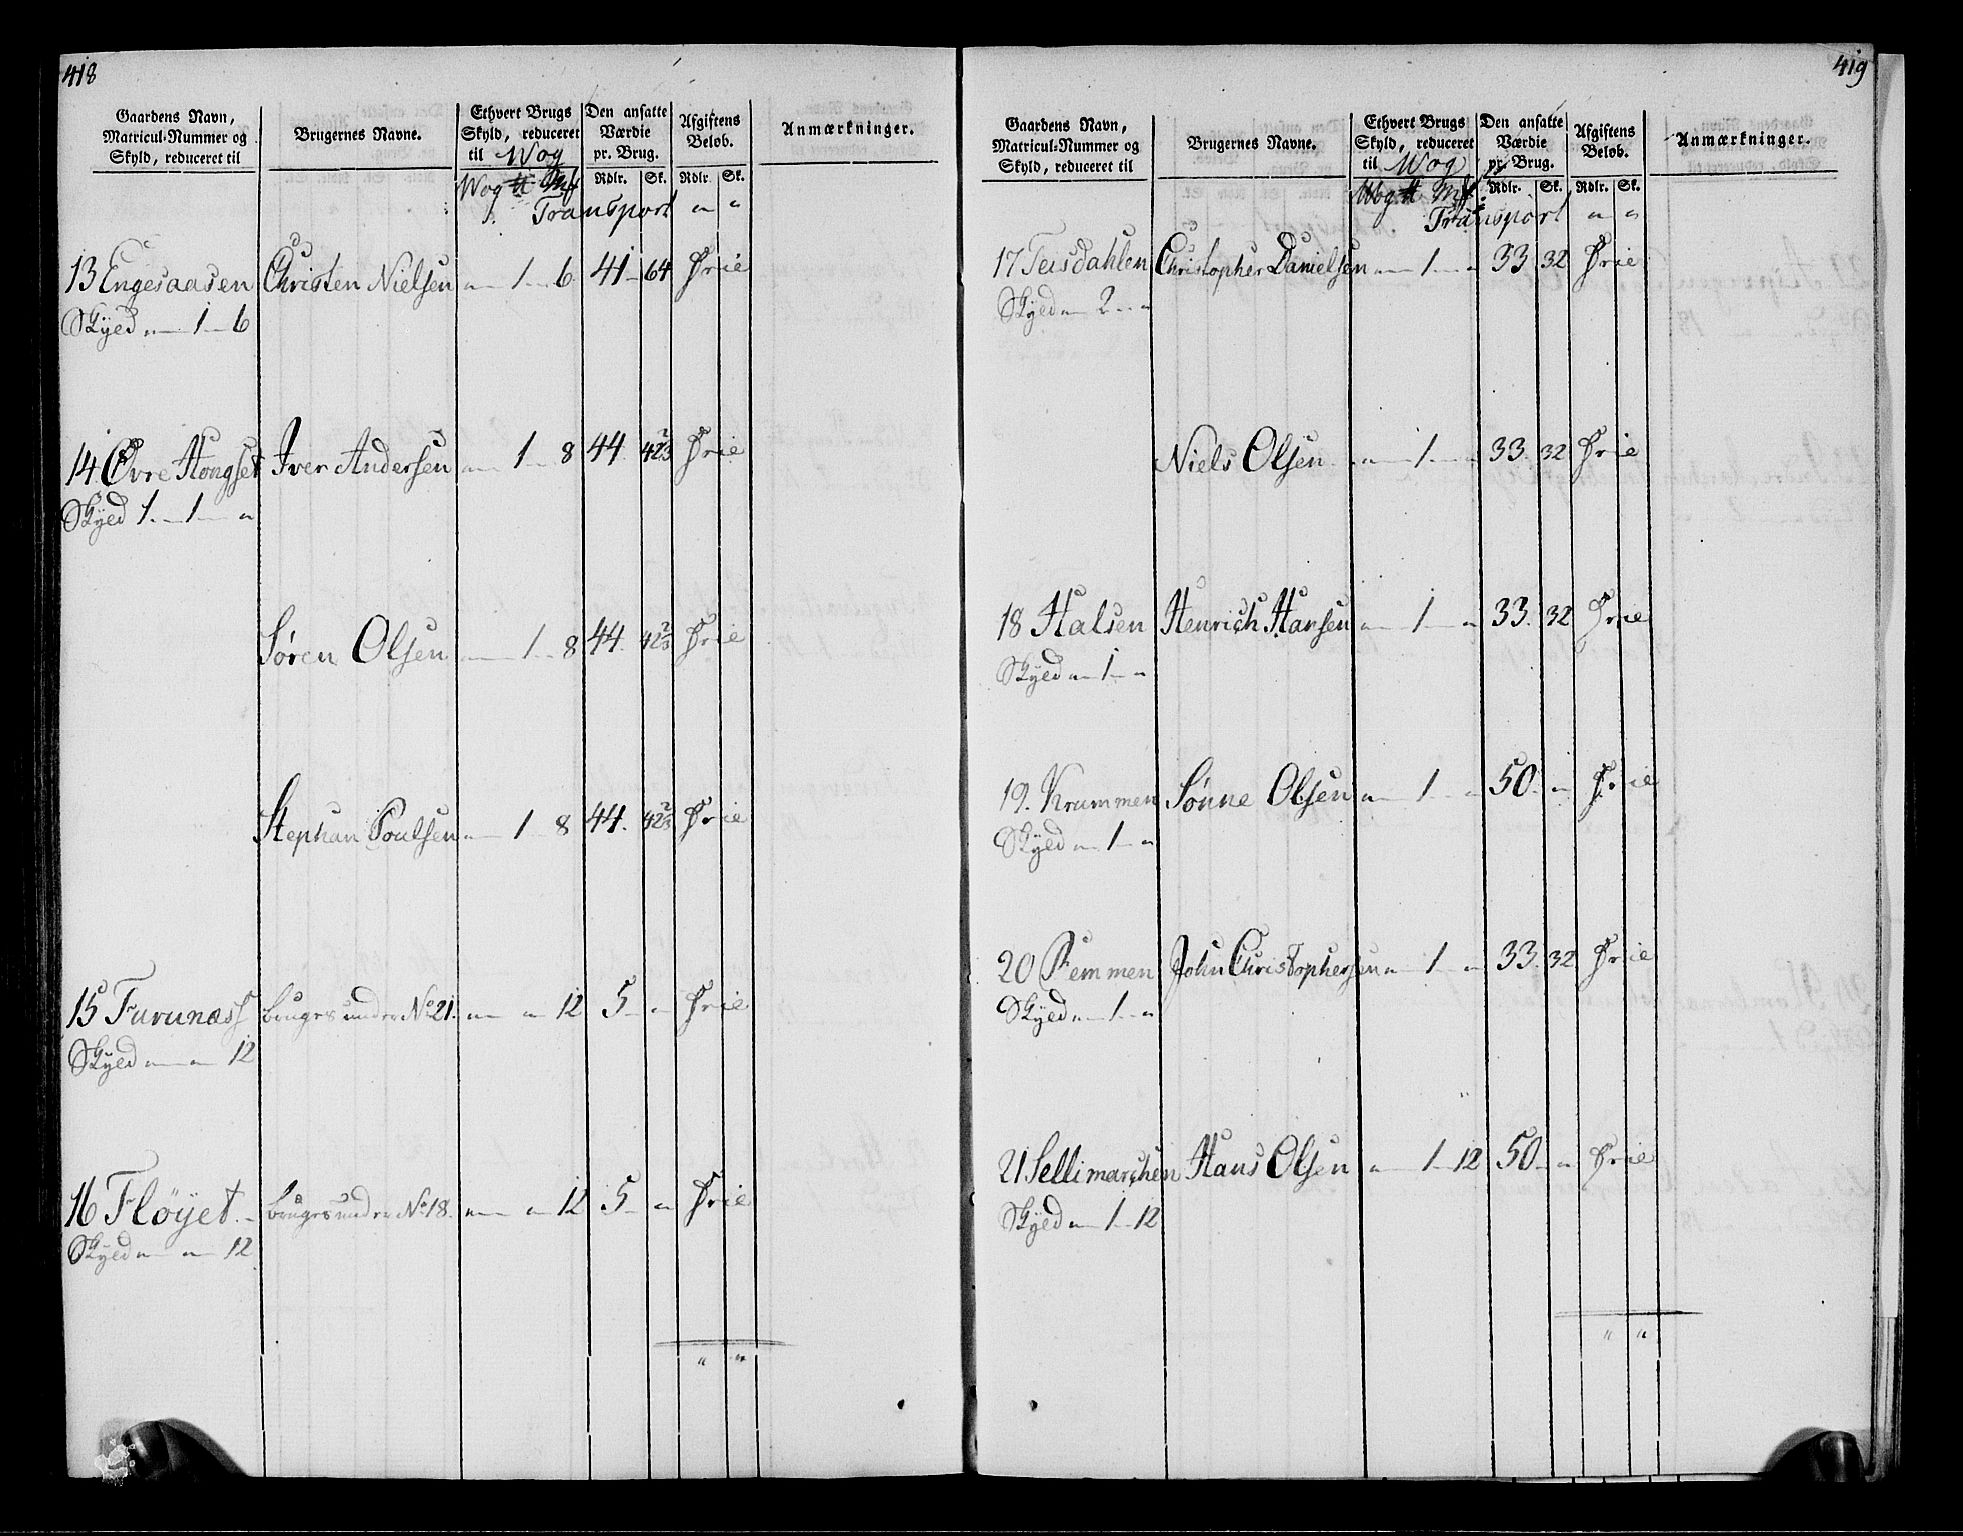 418
Gaardens Navn,
Matricul-Nummer og
Skyld, reduceret til
Brugernes Navne.
Ethvert Brugs
Skyld, reduceret
til Wog
Den ansatte
Værdie
pr. Brug.
Afgiftens
Beløb.
Anmærkninger.
Wog ℔ Mk Rdlr. Sk. Rdlr. Sk.
Transport " "
13 Engesaasen Christen Nielsen " 1 6 41 64 Frie
Skyld " 1 6
14 Øvre Hongset Iver Andersen " 1 8 44. 42⅔ Frie
Skyld 1. 1 "
Søren Olsen " 1 8 44. 42⅔ Frie
Stephan Poulsen " 1 8 44. 42⅔ Frie
15 Furunæss bruges under No 21. " " 12 5 " Frie
Skyld " " 12
16 Fløyet bruges under No 18. " " 12 5 " Frie
Skyld " " 12
" "
419
Gaardens Navn,
Matricul-Nummer og
Skyld, reduceret til
Brugernes Navne.
Ethvert Brugs
Skyld, reduceret
til Wog
Den ansatte
Værdie
pr. Brug.
Afgiftens
Beløb.
Anmærkninger.
Wog ℔ Mk Rdlr. Sk. Rdlr. Sk.
Transport " "
17 Teisdahlen Christopher Danielsen " 1 " 33 32 Frie
Skyld " 2 "
Niels Olsen " 1 " 33. 32 Frie
18 Halsen Henrich Hansen " 1 " 33. 32 Frie
Skyld " 1 "
19. Krummen Sønne Olsen " 1 " 50. " Frie
Skyld " 1 "
20 Remmen John Christophersen " 1 " 33. 32 Frie
Skyld " 1 "
21 Sellimarchen Hans Olsen " 1 12 50 " Frie
Skyld " 1 12
" "